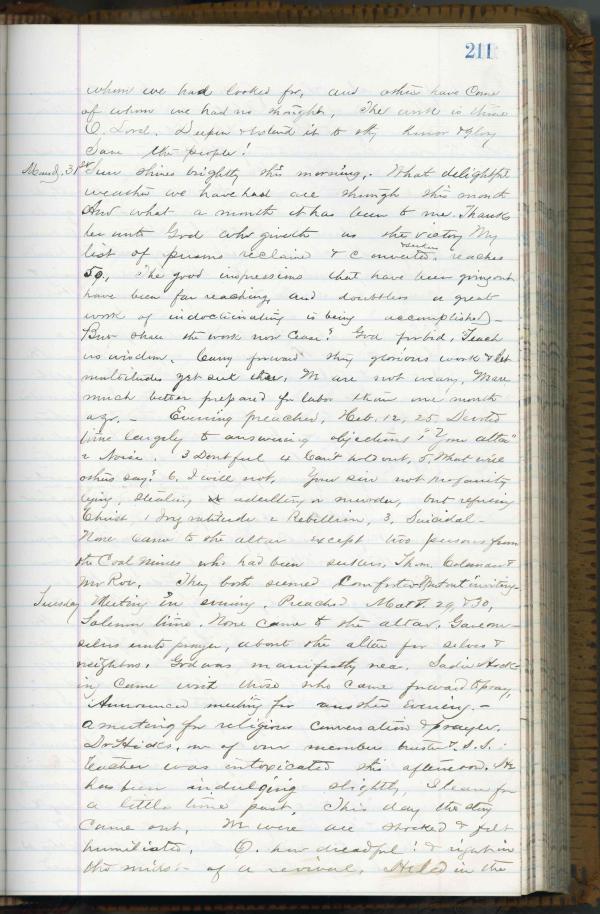 211
whom we had looked for, and others have come
of whom we had no thought, The work is thine
O, Lord. Deepen & extend it to thy honor & glory
Save the people!
Mond, 31st Sun shines brightly this morning. What delightful
weather we have had all through this month
And what a month it has been to me. Thanks
be unto God who giveth us the victory My
list of persons reclaimed & converted, reaches
& seekers
59, The good impressions that have been going out
have been far reaching, and doubtless a great
work of indoctrinating is being accomplished –
But shall the work now cease? God forbid, Teach
us wisdom. Carry forward thy glorious work & let
multitudes yet seek thee, We are not weary, We are
much better prepared for labor than one month
ago. – Evening preached, Heb. 12, 25, Devoted
time largely to answering objections 1st "Your altar"
2 Noise. 3 Doubtful 4 Can't hold out, 5, What will
others say? 6, I will not, Your sin not profanity
lying, stealing adultery or murder, but refusing
Christ, 1 Ingratitude 2 Rebellion, 3, Suicidal –
None came to the altar except two persons from
the Coal Mines who had been seekers, Thom. Coleman &
Mr Rov. They both seemed comforted
Tuesday Meeting in evening. Preached Matt 8, 29, & 30,
Solemn time. None came to the altar. Gave our
selves unto prayer, about the altar for selves &
neighbors. God was manifestly near. Sadie
came with those who came forward to pray,
Announced meeting for another evening. –
a meeting for religious conversation & prayer.
Dr Hicks, one of our members trustee & S. S.
teacher was intoxicated this afternoon. He
has been indulging slightly, I learn for
a little time past, This day the
came out, We were all shocked & felt
humiliated, O, how dreadful! & right in
the midst of a revival, in the